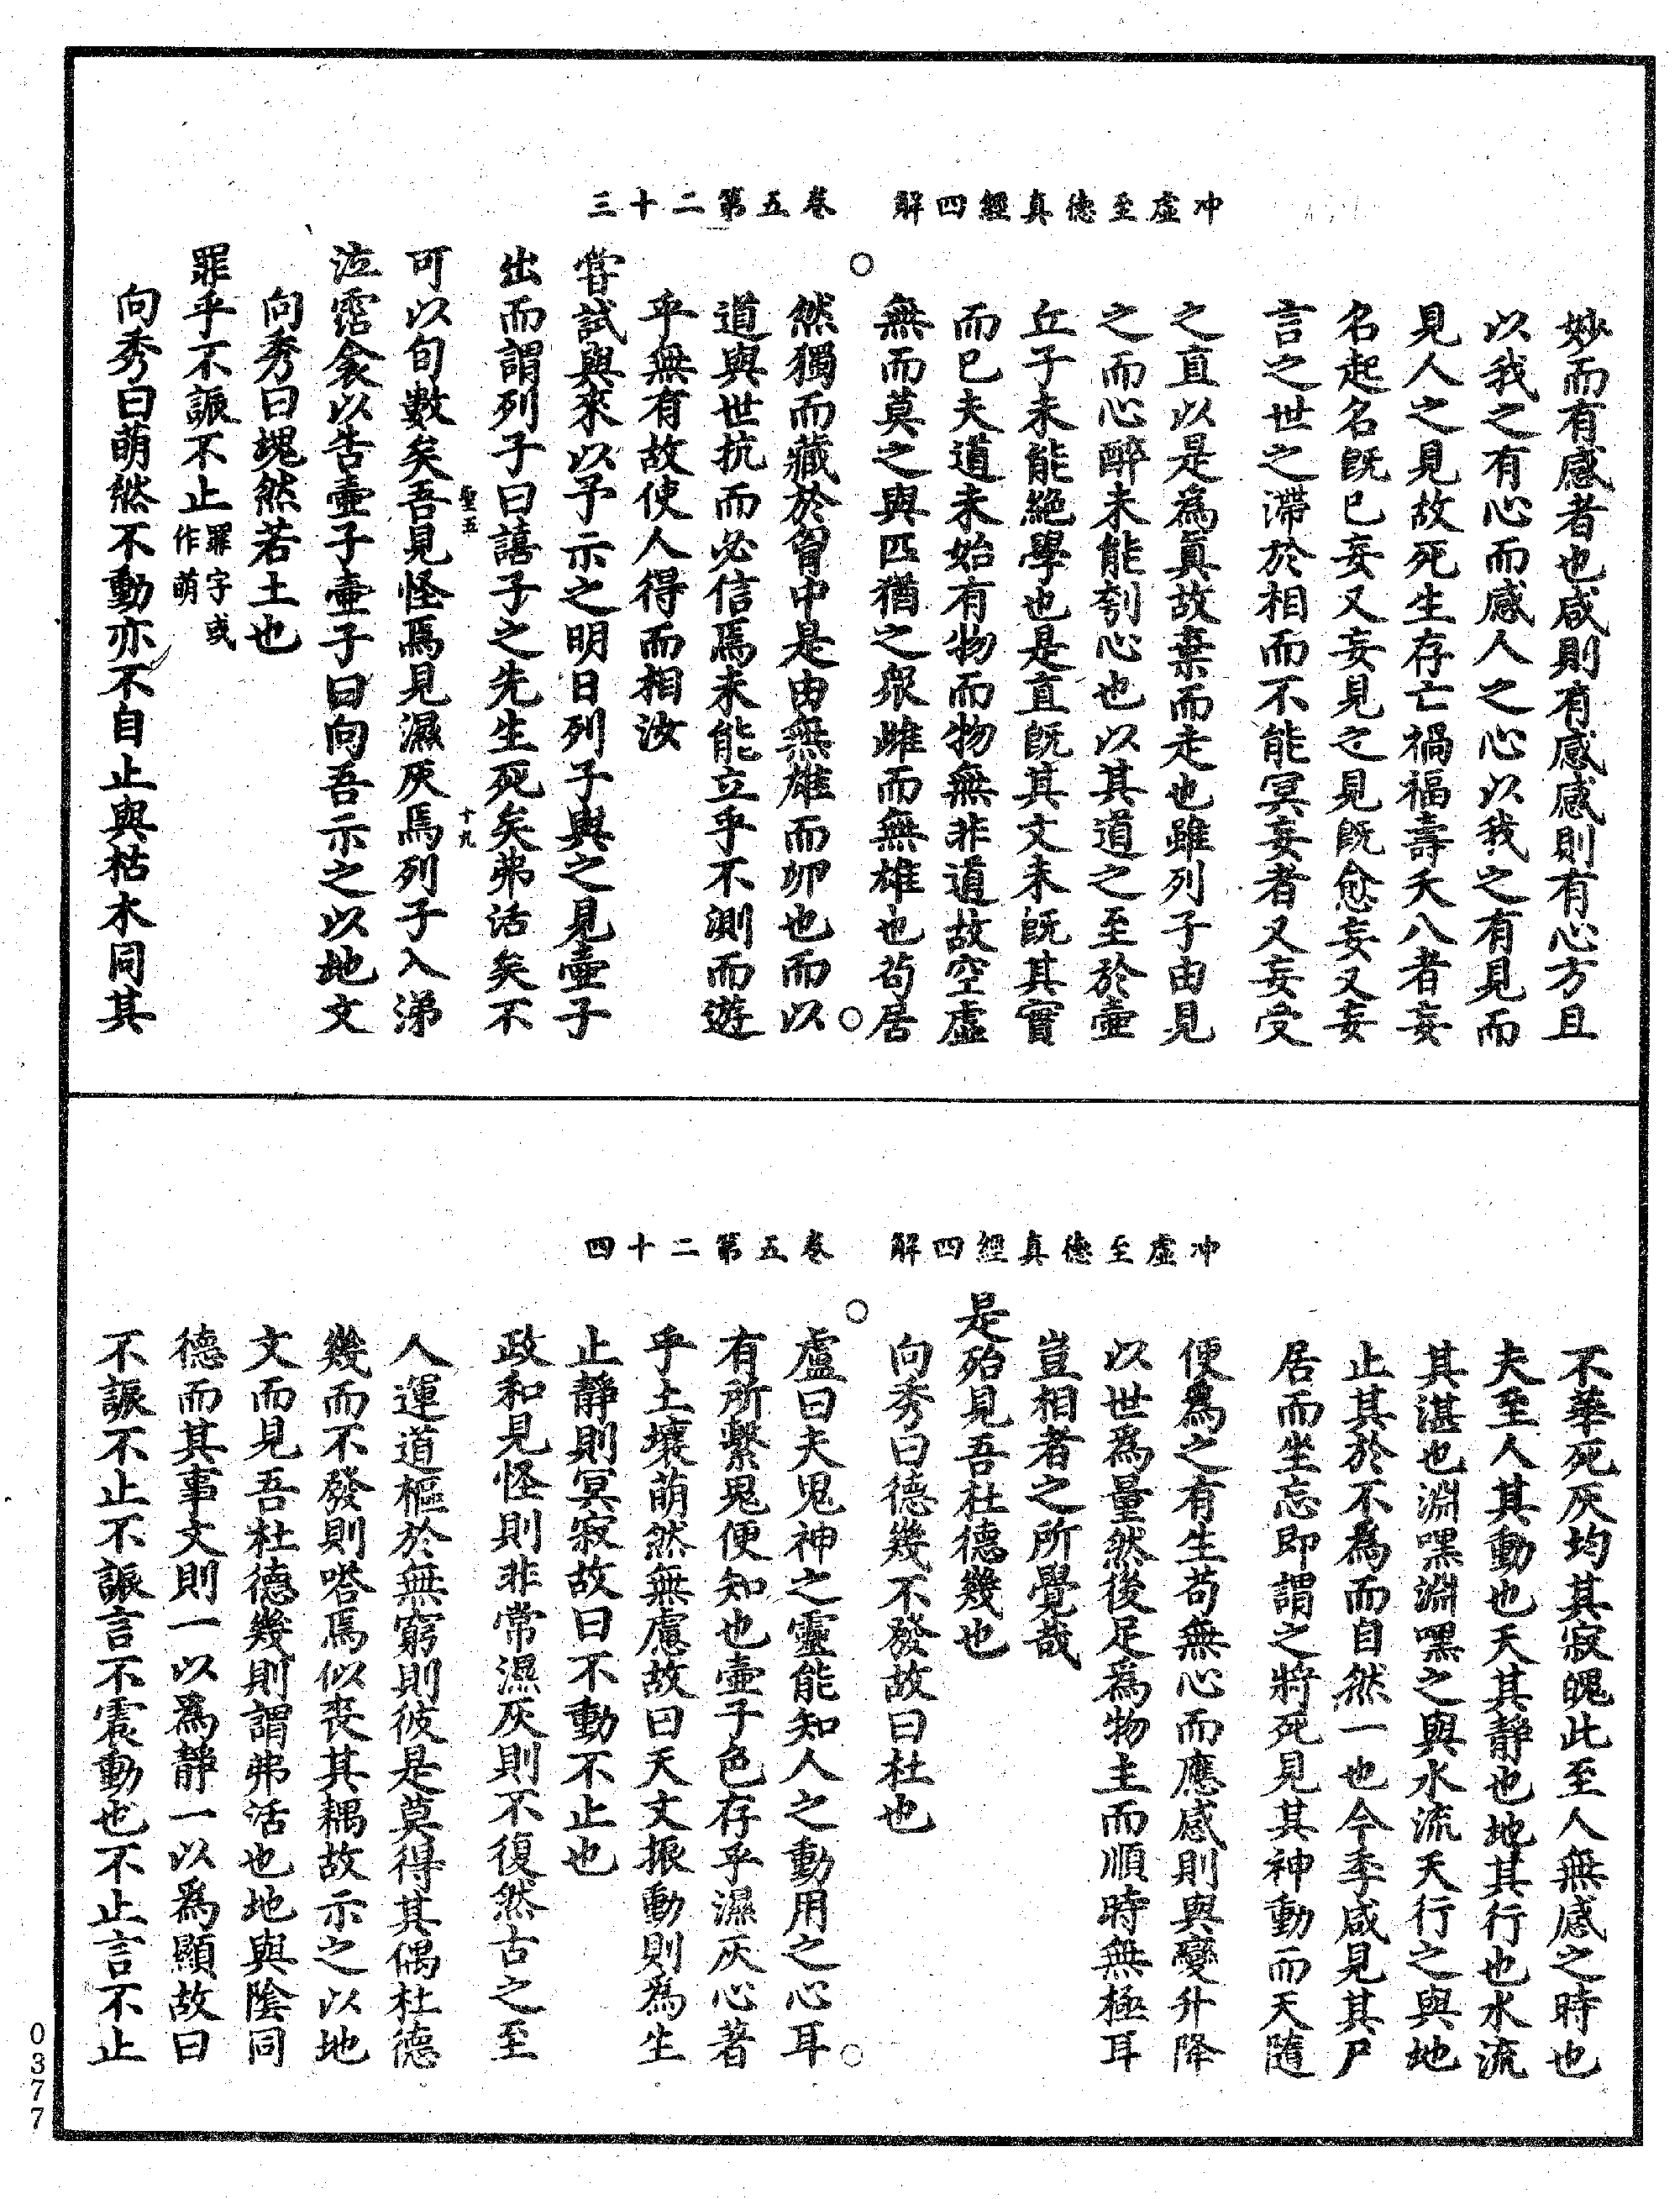 冲虛至德真經四解　卷五第二十三
妙而有感者也咸則有感感則有心方且
以我之有心而感人之心以我之有見而
見人之見故死生存亡禍福壽夭八者妄
名起名既已妄又妄見之見既愈妄又妄
言之世之滯於相而不能冥妄者又妄受
之直以是為真故棄而走也雖列子由見
之而心醉未能刳心也以其道之至於壺
丘子未能絕學也是直既其文未既其實
而已夫道未始有物而物無非道故空虛
無而莫之與匹猶之衆雌而無雄也苟居
然獨而藏於胷中是由無雄而卵也而以
道與世抗而必信焉未能立乎不測而遊
乎無有故使人得而相汝
嘗試與來以予示之明日列子與之見壺子
出而謂列子曰譆子之先生死矣弗活矣不
可以旬數矣吾見怪焉見濕灰焉列子入涕
聖五
十九
泣霑衾以告壺子壺子曰向吾示之以地文
向秀曰塊然若土也
罪乎不誫不止罪字或作萌
向秀曰萌然不動亦不自止與枯木同其
冲虛至德真經四解　卷五第二十四
不華死灰均其寂魄此至人無感之時也
夫至人其動也天其靜也地其行也水流
其湛也淵嘿淵嘿之與水流天行之與地
止其於不為而自然一也今季咸見其尸
居而坐忘即謂之將死見其神動而天隨
便為之有生苟無心而應感則與變升降
以世為量然後足為物主而順時無極耳
豈相者之所覺哉
是殆見吾杜德幾也
向秀曰德幾不發故曰杜也
盧曰夫鬼神之靈能知人之動用之心耳
有所繫鬼便知也壺子色存乎濕灰心著
乎土壤萌然無慮故曰天文振動則為生
止靜則冥寂故曰不動不止也
政和見怪則非常濕灰則不復然古之至
人運道樞於無窮則彼是莫得其偶杜德
幾而不發則嗒焉似喪其耦故示之以地
文而見吾杜德幾則謂弗活也地與陰同
德而其事文則一以為靜一以為顯故曰
不誫不止不誫言不震動也不止言不止
0377